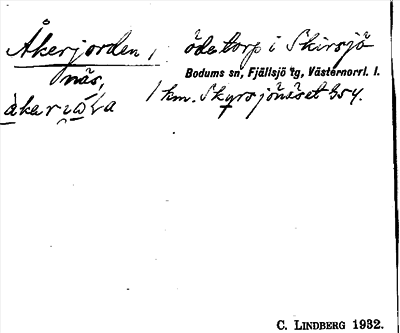 Åkerjorden, ödetorp i Skirsjö
näs,
Bodums sn, Fjällsjö tg, Västernorrl. l.
1 km. Skyrsjönäset
C. LINDBERG 1932.